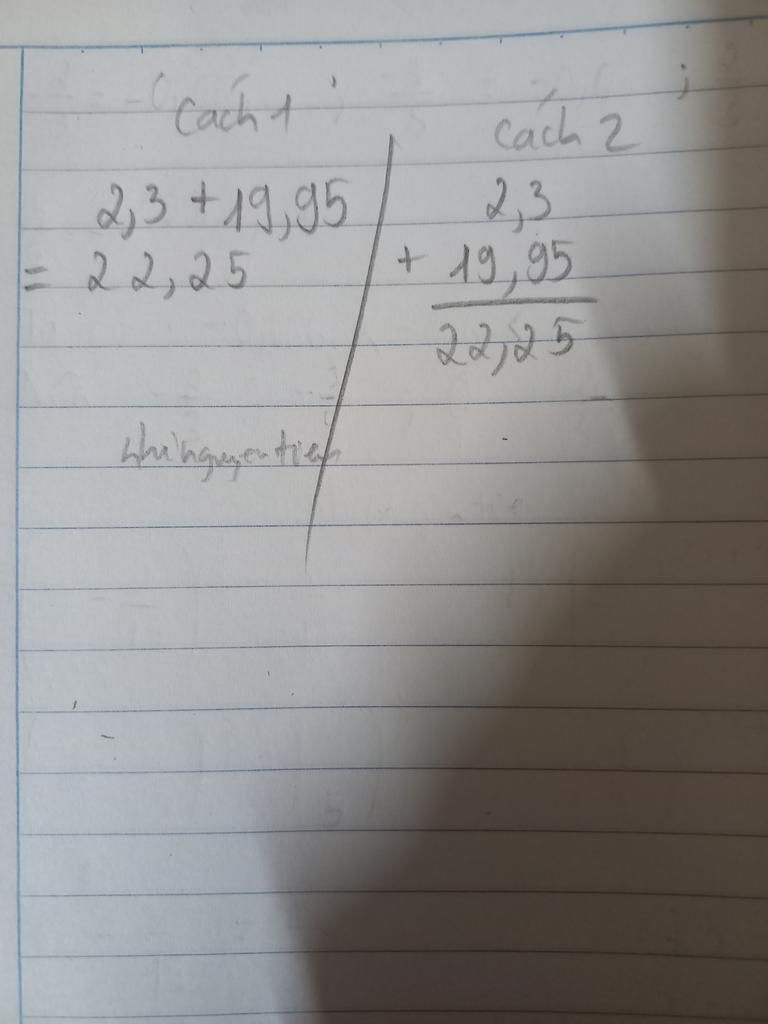 Cách 1
2,3 + 19,95
= 22,25
Cách 2
2,3
+ 19,95
22,25